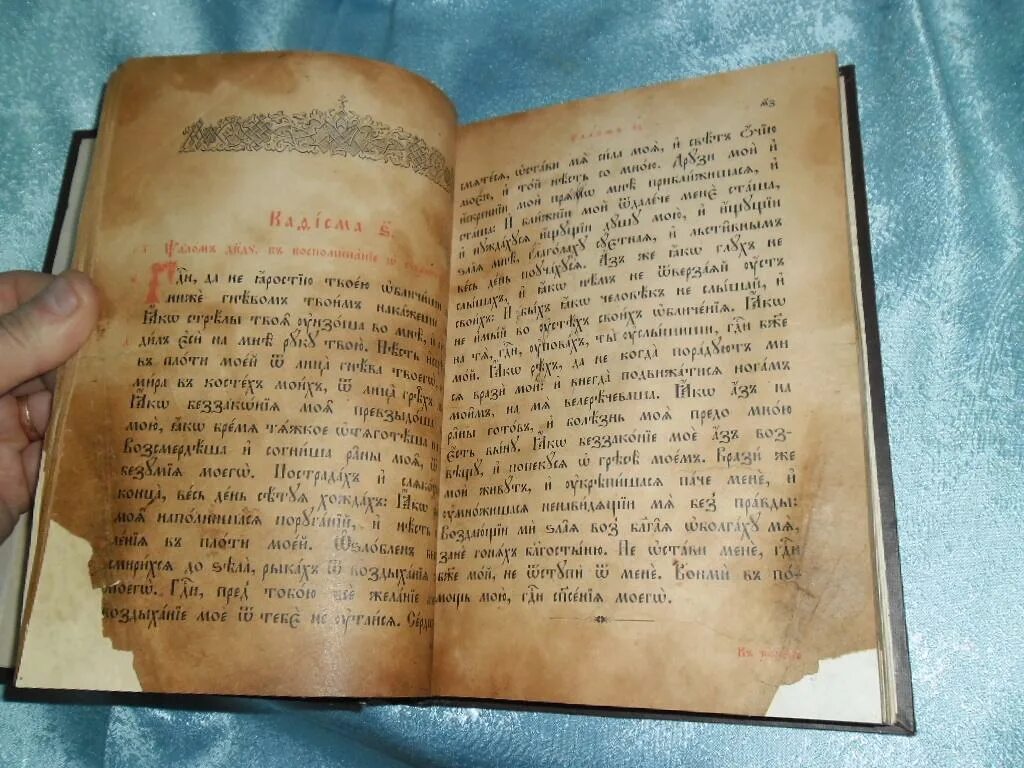 Каѳі́сма ѕ҃.
Ѱало́мъ дв҃ду, въ воспомина́нїе ѡ
Гдⷭ҇и, да не ꙗ҆́ростїю твое́ю ѡ҆бличи́ши
нижѐ гнѣ́вомъ твои́мъ нака́жеши
Ꙗ҆́кѡ стрѣ́лы твоѧ̑ ᲂу҆нзо́ша во мнѣ̀, и҆
ди́лъ є҆сѝ на мнѣ̀ рꙋ́кꙋ твою̀. Нѣ́сть
въ пло́ти мое́й ѿ лица̀ гнѣ́ва твоегѡ̀,
ми́ра въ косте́хъ мои́хъ, ѿ лица̀ грѣ̑хъ
Ꙗ҆́кѡ беззакѡ́нїѧ моѧ̑ превзыдо́ша
мою̀, ꙗ҆́кѡ бре́мѧ тѧ́жкое ѡ҆тѧготѣ́ша
Возсмердѣ́ша и҆ согни́ша ра̑ны моѧ̑, ѿ
безꙋ́мїѧ моегѡ̀. Пострада́хъ и҆ слѧко́хсѧ
конца̀, ве́сь де́нь сѣ́тꙋѧ хожда́хъ: Ꙗ҆́кѡ
моѧ̑ напо́лнишасѧ порꙋга́нїй, и҆ нѣ́сть
ле́нїѧ въ пло́ти мое́й. Ѡ҆ѕло́бленъ
смири́хсѧ до ѕѣла̀, рыка́хъ ѿ воздыха́нїѧ
моегѡ̀. Гдⷭ҇и, пред̾ тобо́ю всѐ жела́нїе
воздыха́нїе моѐ ѿ тебє̀ не ᲂу҆таи́сѧ. Се́рдце
ѯ҃з
смѧте́сѧ, ѡ҆ста́ви мѧ̀ си́ла моѧ̀, и҆ свѣ́тъ ѻ҆́чїю
мое́ю, и҆ то́й нѣ́сть со мно́ю. Дрꙋ́зи моѝ и҆
и҆́скреннїи моѝ прѧ́мѡ мнѣ̀ прибли́жишасѧ, и҆
ста́ша: И҆ бли́жнїи моѝ ѿдале́че менє̀ ста́ша,
и҆ нꙋжда́хꙋсѧ и҆́щꙋщїи дꙋ́шꙋ мою̀, и҆ и҆́щꙋщїи
ѕла̑ѧ мнѣ̀, глаго́лахꙋ сꙋ́етнаѧ, и҆ льсти̑внымъ
ве́сь де́нь поꙋча́хꙋсѧ. А҆́зъ же ꙗ҆́кѡ глꙋ́хъ не
слы́шахъ, и҆ ꙗ҆́кѡ нѣ́мъ не ѿверза́ѧй ᲂу҆́стъ
свои́хъ: И҆ бы́хъ ꙗ҆́кѡ человѣ́къ не слы́шай, и҆
не и҆мы́й во ᲂу҆стѣ́хъ свои́хъ ѡ҆бличе́нїѧ. Ꙗ҆́кѡ
на тѧ̀, гдⷭ҇и, ᲂу҆пова́хъ, ты̀ ᲂу҆слы́шиши, гдⷭ҇и бж҃е
мо́й. Ꙗ҆́кѡ рѣ́хъ, да не когда̀ пора́дꙋютъ ми
сѧ вразѝ моѝ: и҆ внегда̀ подвижа́тисѧ нога́мъ
мои̑мъ, на мѧ̀ велерѣ́чеваша. Ꙗ҆́кѡ а҆́зъ на
ра̑ны гото́въ, и҆ болѣ́знь моѧ̀ предо мно́ю
є҆́сть вы́нꙋ. Ꙗ҆́кѡ беззако́нїе моѐ а҆́зъ воз-
вѣщꙋ̀, и҆ попекꙋ́сѧ ѡ҆ грѣсѣ̀ мое́мъ. Врази́ же
моѝ живꙋ́тъ, и҆ ᲂу҆крѣпи́шасѧ па́че менє̀, и҆
ᲂу҆мно́жишасѧ ненави́дѧщїи мѧ̀ без̾ пра́вды:
Воздаю́щїи мѝ ѕла̑ѧ воз̾ бл҃га̑ѧ ѡ҆болга́хꙋ мѧ̀,
занѐ гонѧ́хъ бл҃госты́ню. Не ѡ҆ста́ви менѐ, гдⷭ҇и
бж҃е мо́й, не ѿстꙋпѝ ѿ менє̀. Вонмѝ въ по́-
мощь мою̀, гдⷭ҇и сп҃се́нїѧ моегѡ̀.